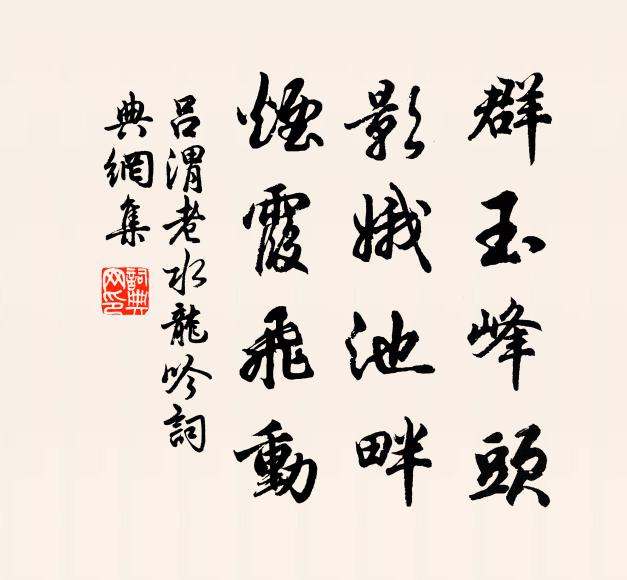 群玉峰頭
影娥池畔
煙霞飛動
吕渭老水龍吟詞
典網集
詞典網印